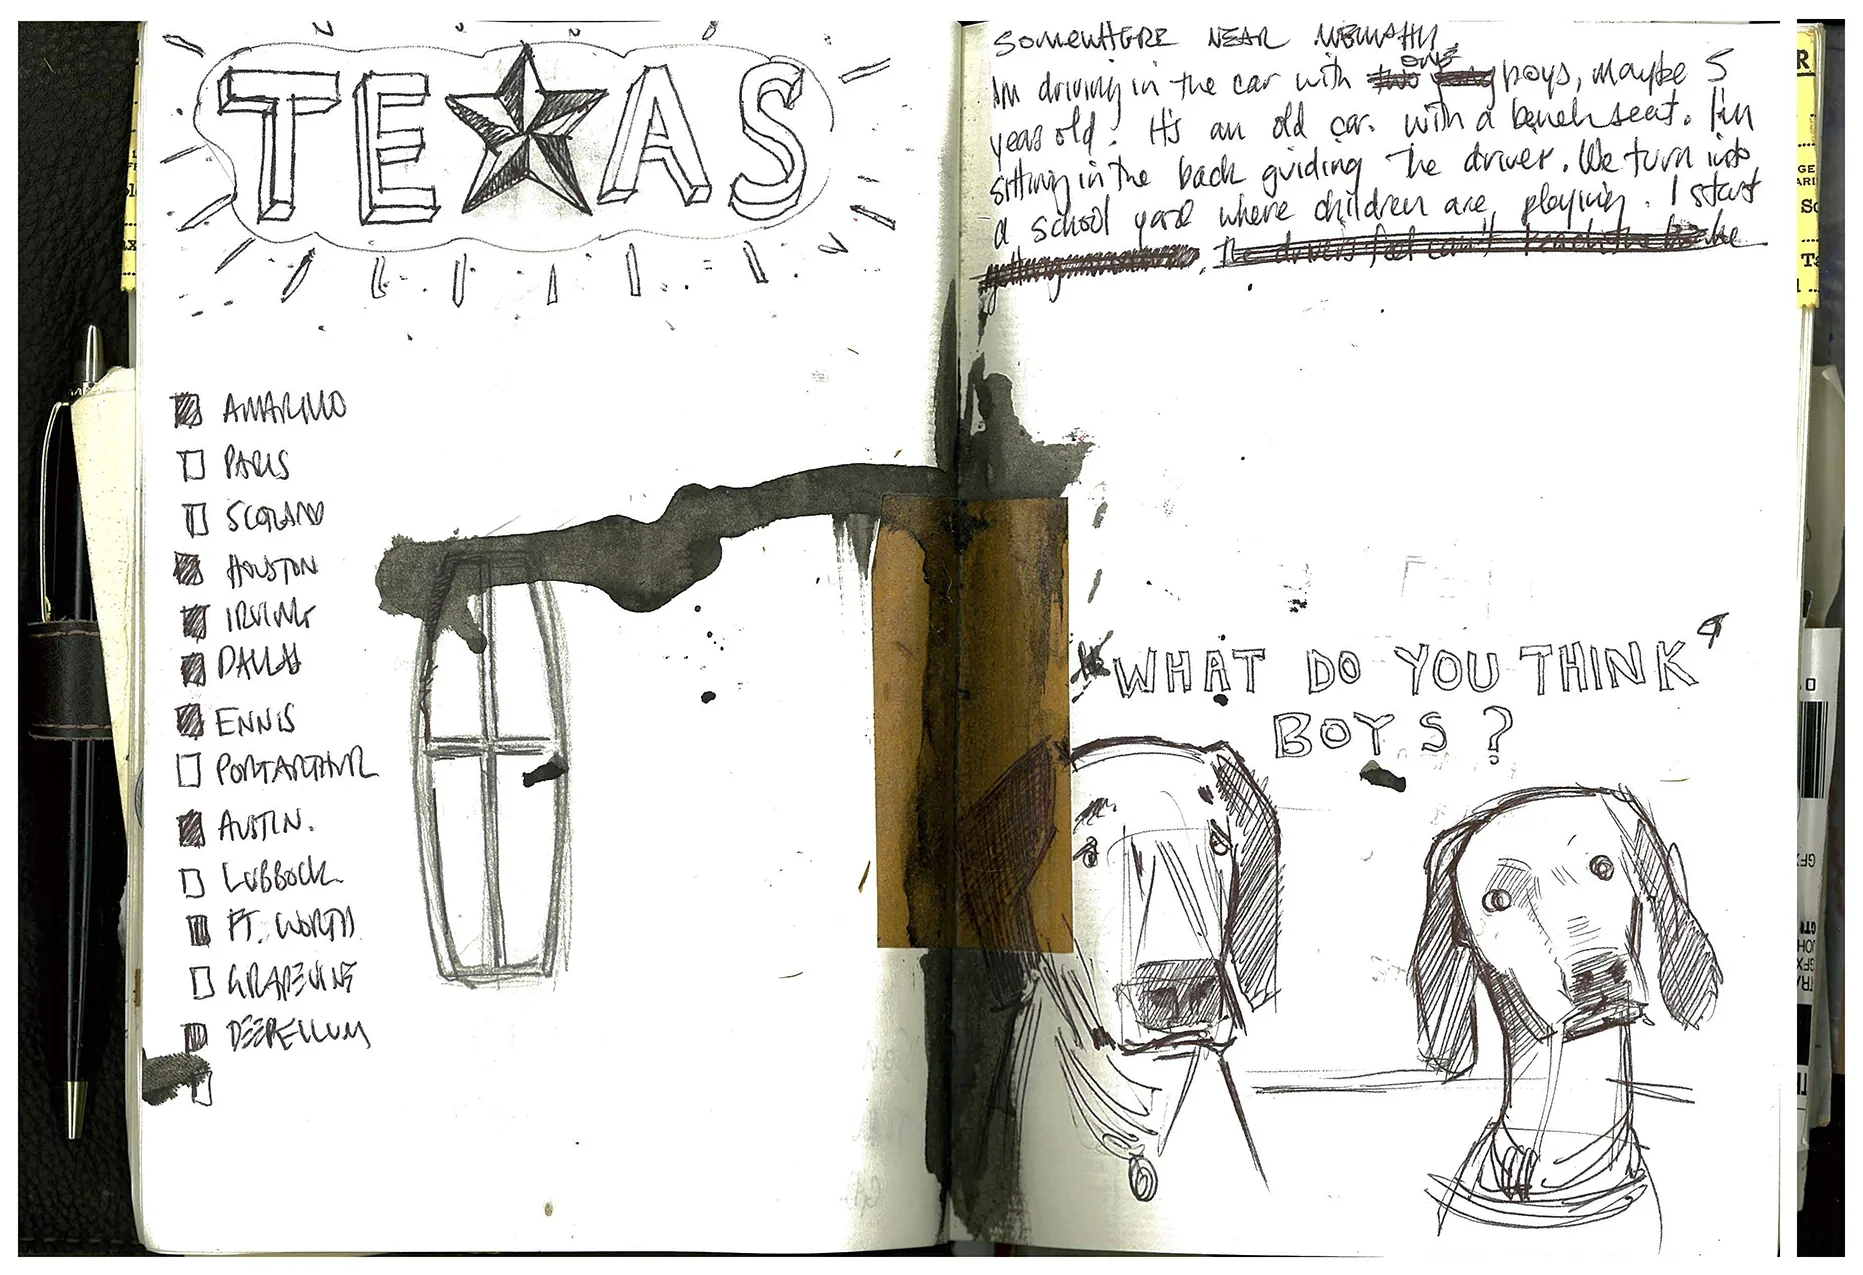 TEXAS
AMARILLO
PARIS
SCOTLAND
HOUSTON
IRVING
DALLAS
ENNIS
PORT ARTHUR
AUSTIN.
LUBBOCK
FT. WORTH
GRAPEVINE
DEEPELLUM
SOMEWHERE NEAR
Im driving in the car with one boys, maybe 5
years old. It's an old car. with a bench seat. I'm
sitting in the back guiding the driver. We turn into
a school yard where children are playing. I start
The drivers feet can't reach the brake
"WHAT DO YOU THINK
BOYS?